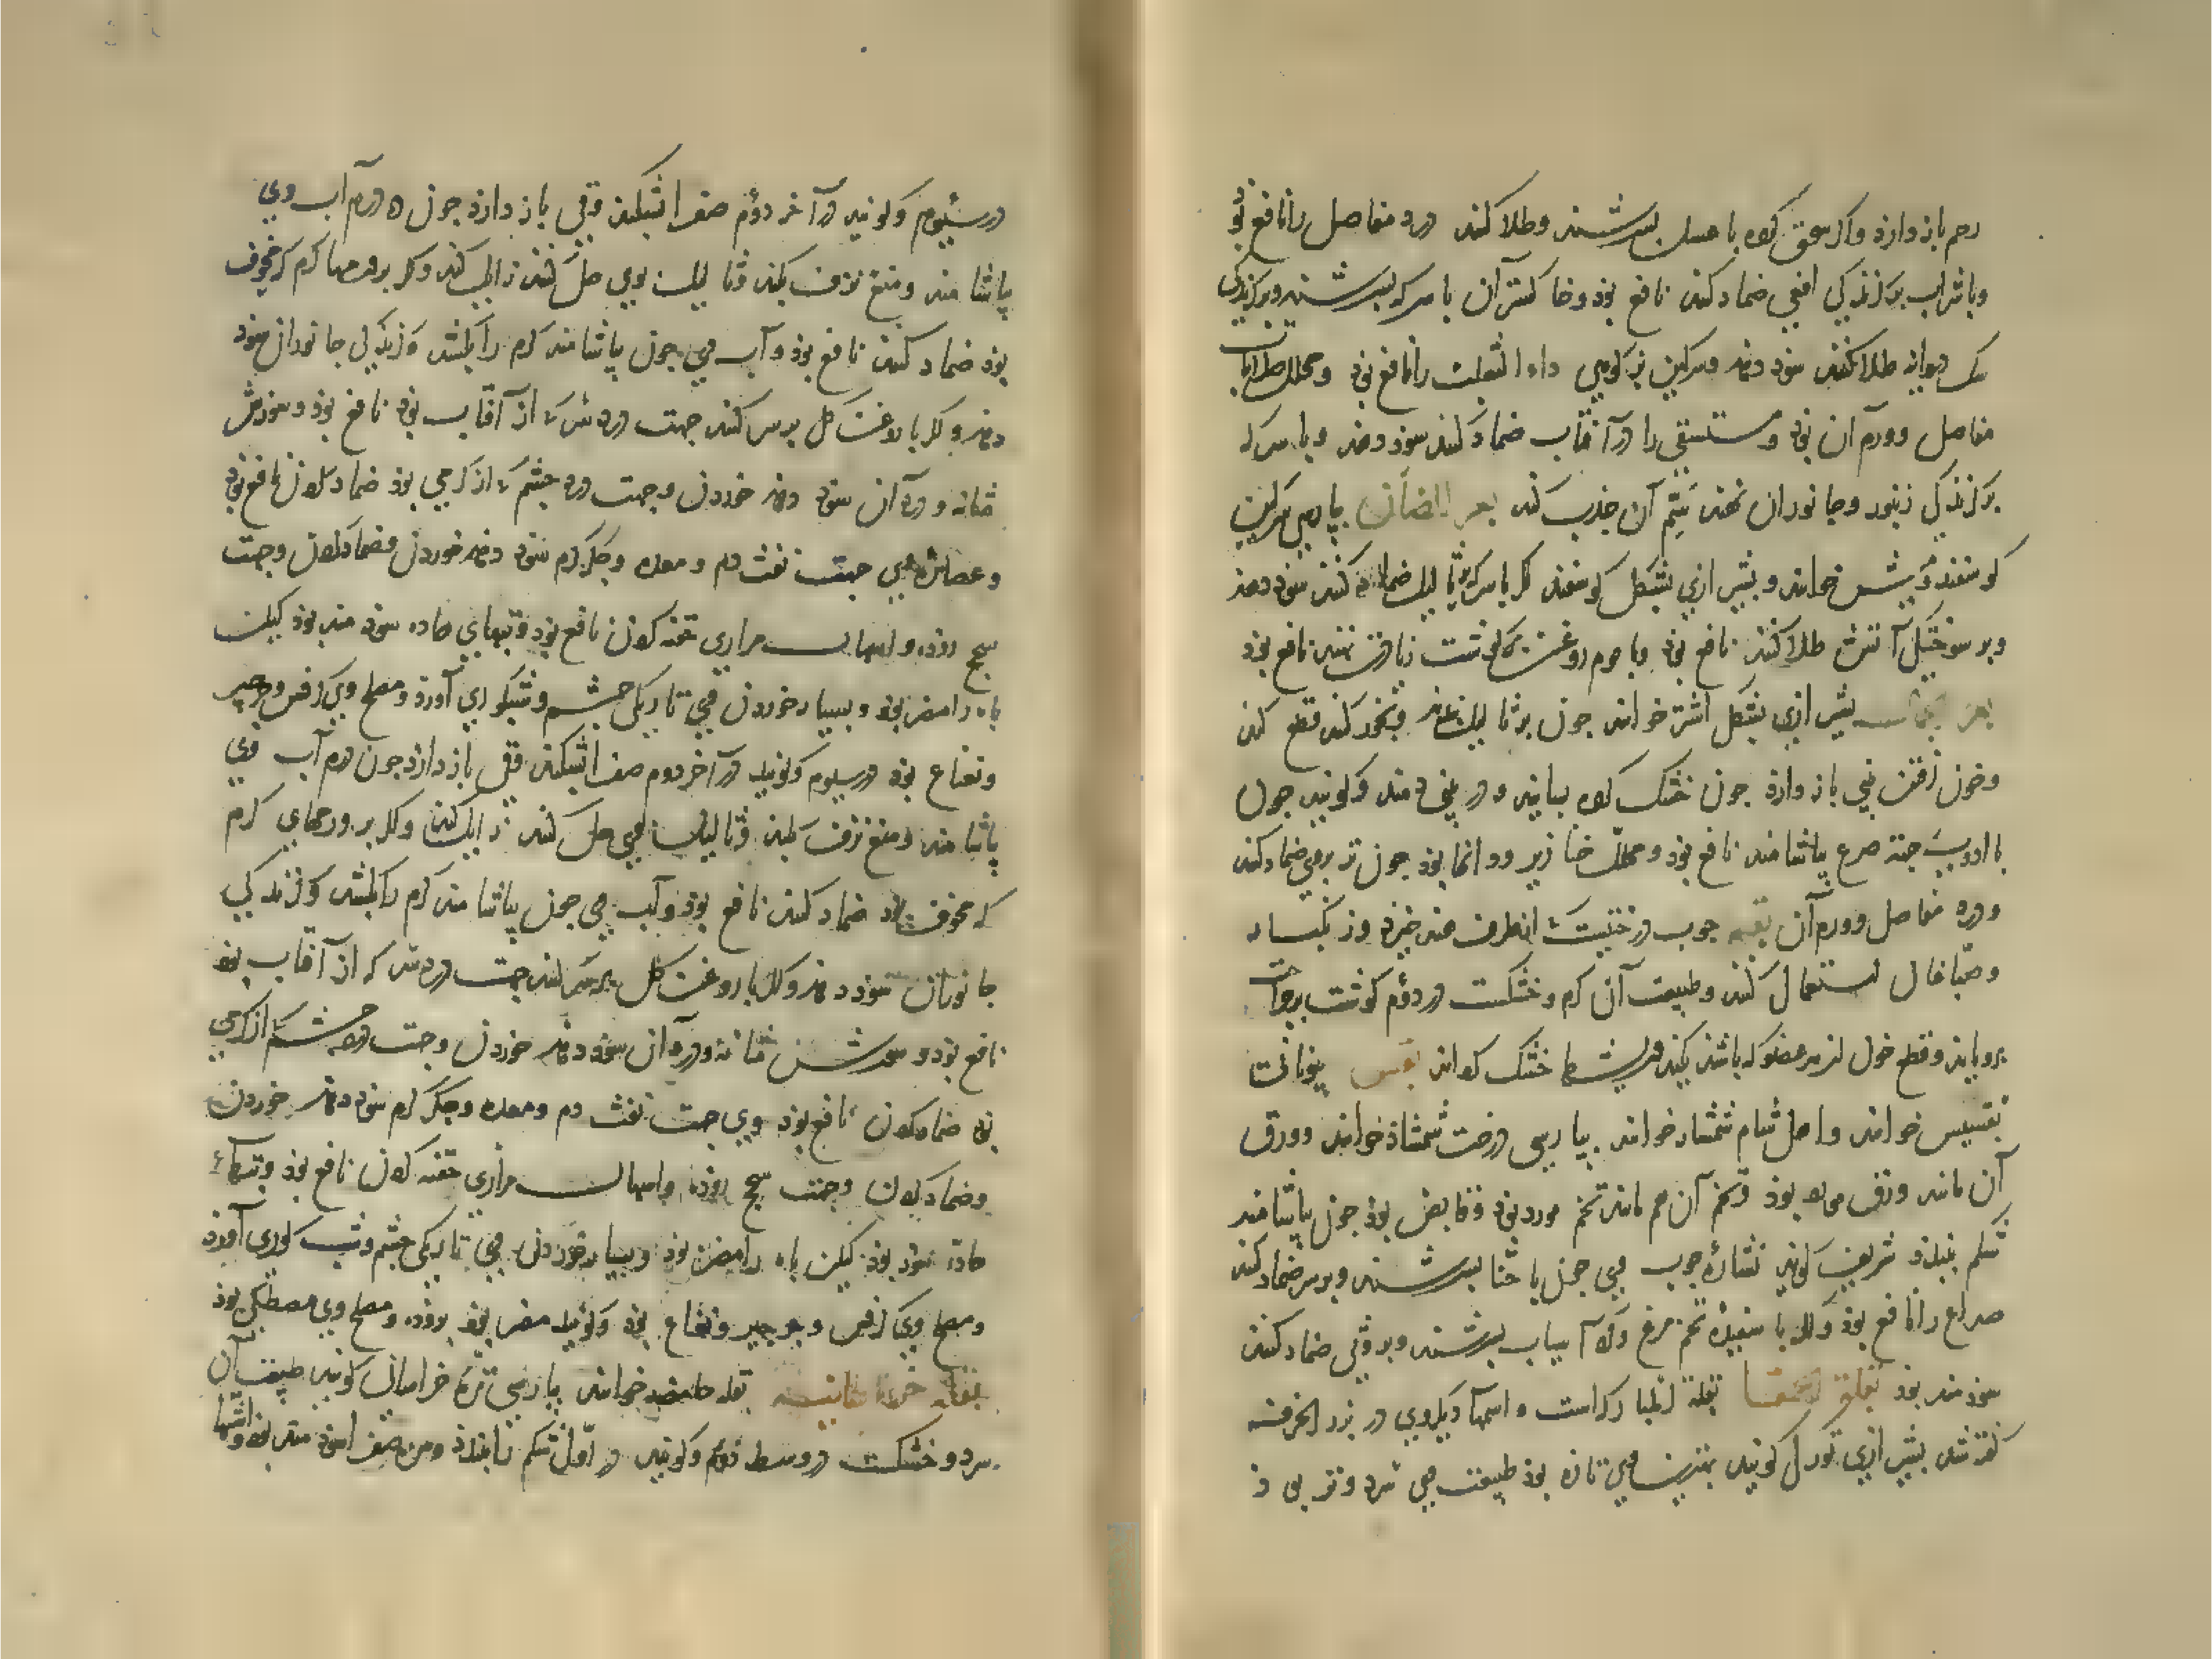 رحم باز دارد و اگر سحق کرده با عسل بسرشند و طلا کنند درد مفاصل را نافع بود
و با شراب بر گزندگی افعی ضماد کنند نافع بود و خاکستر آن با سرکه بسرشند و بر گزندگی
سک دیوانه طلا کنند سود دهد و سرکین بز کوهی داء الثعلب را نافع بود و محلل صلابات
مفاصل و ورم آن بود و مستسقی را در آفتاب ضماد کنند سود دهد و با سرکه
بر گزندگی زنبور و جانوران نهند سم آن جذب کند بعر الضأن بپارسی سرکین
کوسفند و میش خوانند و بشیرازی بشکل کوسفند کر با سرکه بر ثآلیل ضماد کنند سود دهد
و بر سوختگی آتش طلا کنند نافع بود و با موم روغن بر گوشت زیادت نهند نافع بود
بعر بشیرازی بشکل اشتر خوانند جون بر ثآلیل نهند و بخور کنند قطع کند
و خون رفتن بینی باز دارد جون خشک کرده بسایند و در بینی دمند و کویند جون
با ادویه جهت صرع بیاشامند نافع بود و محلل خنازیر و ورمها بود جون تر بروی ضماد کنند
و درد مفاصل و ورم آن بقم جوب درختیست از طرف هند خیزد و زنکبار
و صباغان استعمال کنند و طبیعت آن کرم و خشکست در دوم کوشت بر جراحت
برویاند و قطع خون از هر عضو که باشد بکند و ریشها خشک کرداند بقس بیونانی
بقسیس خوانند و اهل شام شمشار خوانند بپارسی درخت شمشاد خوانند و ورق
آن مانند ورق مورد بود و تخم آن هم مانند تخم مورد بود و قابض بود جون بیاشامند
شکم ببندد و شریف کوید نشارۀ جوب وی جون با حنا بسرشند و بر سر ضماد کنند
صداع را نافع بود و اگر با سفیدۀ تخم مرغ و کرد آسیاب بسرشند و بر وثی ضماد کنند
سودمند بود بقلة الحمقا بقلة المبارکه است و اسمهاء دیکر وی در بزر الخرفه
کفته شد بشیرازی تورک کویند بهترین وی تازه بود طبیعت وی سرد و تر بی
در سیوم و کویند در آخر دوم صفرا بشکند و قی باز دارد جون ۵ درم آب وی
بیاشامند و منع نزف بکند و ثآلیل بوی حک کنند زایل کند و کر بر ورمهاء کرم که مخوف
بود ضماد کنند نافع بود و آب وی جون بیاشامند کرم را بکشد و گزندگی جانوران سود
دهد و کر با روغن کل بر سر کنند جهت درد سر که از آفتاب بود نافع بود و سوزش
مثانه و درد آن سود دهد خوردن و جهت درد جشم که از کرمی بود ضماد کردن نافع بود
و عصارۀ وی جهت نفث دم و معده و جکر کرم سود دهد خوردن و ضماد کردن و جهت
سحج روده و اسهال مراری حقنه کردن نافع بود و تبهای حاده سودمند بود لیکن
باه را مضر بود و بسیار خوردن وی تاریکی جشم و شبکوری آورد و مصلح وی کرفس و جرجیر
و نعناع بود در سیوم کویند در آخر دوم صفرا بشکند و قی باز دارد جون درم آب وی
بیاشامند و منع نزف بکند و ثآلیل بوی حک کنند زایل کند و کر بر ورمهای کرم
که مخوف بود ضماد کنند نافع بود و آب وی جون بیاشامند کرم را بکشد و گزندگی
جانوران سود دهد و کر با روغن کل بر سر کنند جهت درد سر که از آفتاب بود
نافع بود و سوزش مثانه و درد آن سود دهد خوردن و جهت درد جشم که از کرمی
بود ضماد کردن نافع بود وی جهت نفث دم و معده و جکر کرم سود دهد خوردن
و ضماد کردن و جهت سحج روده و اسهال مراری حقنه کردن نافع بود و تبهاء
حاده سود بود لیکن باه را مضر بود و بسیار خوردن وی تاریکی جشم و شب کوری آورد
و مصلح وی کرفس و جرجیر و نعناع بود و کویند مضر بود بروده و مصلح وی مصطکی بود
بقلۀ خراسانیه بقله حامضه خوانند بپارسی ترۀ خراسانی کویند طبیعت آن
سرد و خشکست در وسط دوم و کویند در اول شکم را ببندد و مره صفرا سودمند بود و اشتها